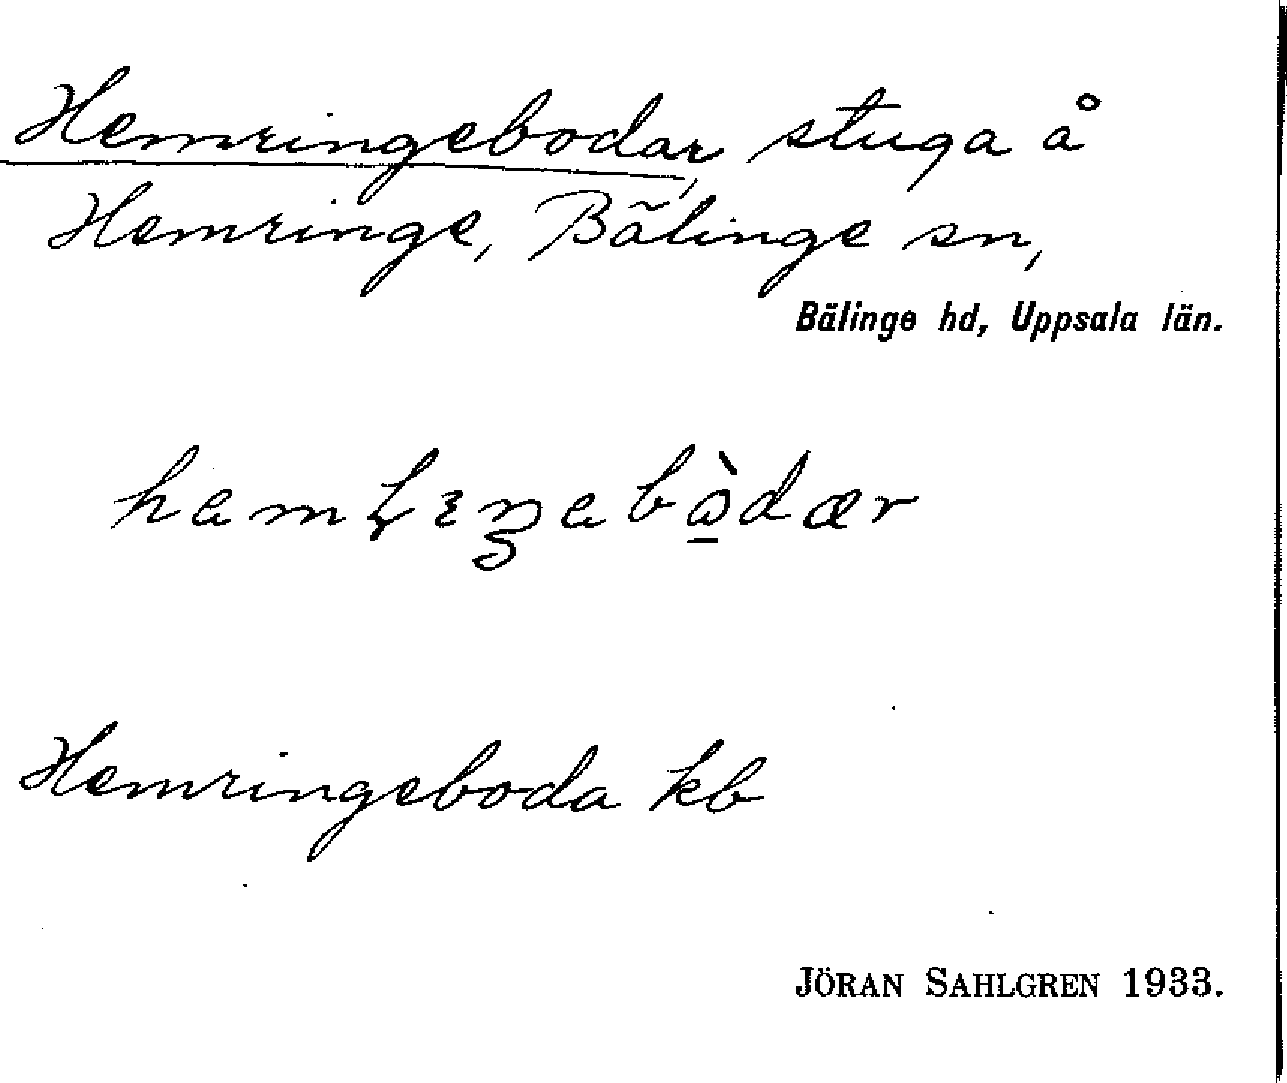 Hemringebodar, stuga å
Hemringe, Bälinge sn,
Bälinge hd, Uppsala län.
Hemringeboda kb
JÖRAN SAHLGREN 1933.